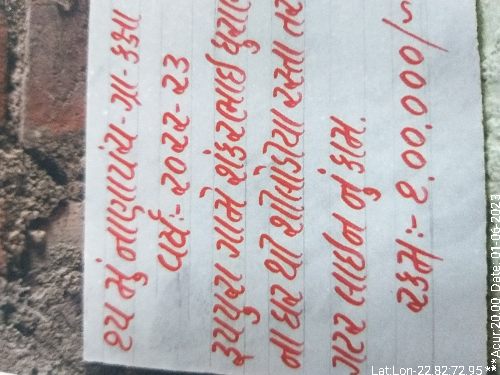 ૧૫ મું નાણાપંચ-ગ્રા-કક્ષા
વર્ષ:- ૨૦૨૨-૨૩
રૂપપુરા ગામે શંકરભાઈ ધુરા
ના ઘર થી સીમોડીયા રસ્તા તર
ગટર લાઈન નું કામ.
રકમ:- ૨.૦૦.૦૦૦/-
Lat:Lon-22.82:72.95
**Acur:20.00 Date: 01-06-2023